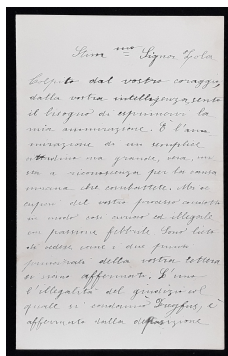 Stim.mo Signor Zola
Colpito dal vostro coraggio,
dalla vostra intelligenza, sento
il bisogno di esprimervi la
mia ammirazione. È l'am
mirazione di un semplice
ma grande, vera,
e riconoscenza per la causa
umana che combattete. Mi
del vostro processo condotto
in modo così curioso ed illegale
con passione febbrile. Sono lieto
di vedere come i due punti
principali della vostra lettera
si sono affermati. L'uno
l'illegalità del giudizio col
quale si condannò Dreyfus, è
affermato dalla deposizione